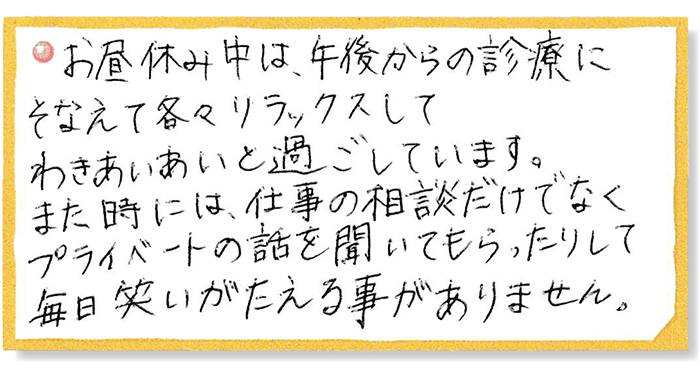 お昼休み中は、午後からの診療に
そなえて各々リラックスして
わきあいあいと過ごしています。
また時には、仕事の相談だけでなく
プライベートの話を聞いてもらったりして
毎日笑いがたえる事がありません。